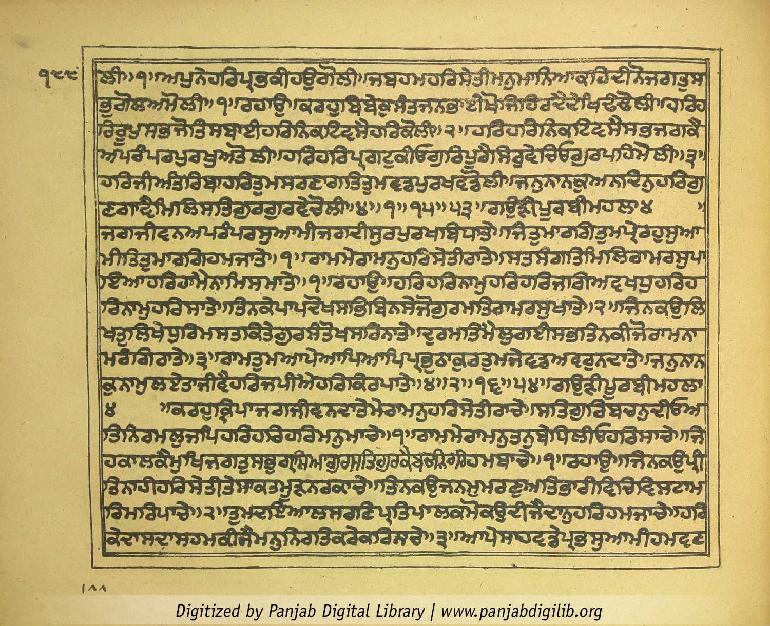 ੧੮੮
ਲੀ॥੧॥ਅਪੁਨੇਹਰਿਪ੍ਰਭਕੀਹਉਗੋਲੀ॥ਜਬਹਮਹਰਿਸੇਤੀਮਨੁਮਾਨਿਆਕਰਿਦੀਨੋਜਗਤੁਸ
ਭੁਗੋਲਅਮੋਲੀ॥੧॥ਰਹਾਉ॥ਕਰਹੁਬਿਬੇਕੁਸੰਤਜਨਭਾਈਖੋਜਿਹਿਰਦੈਦੇਖਿਢੰਢੋਲੀ॥ਹਰਿਹ
ਰਿਰੂਪੁਸਭਜੋਤਿਸਬਾਈਹਰਿਨਿਕਟਿਵਸੈਹਰਿਕੋਲੀ॥੨॥ਹਰਿਹਰਿਨਿਕਟਿਵਸੈਸਭਜਗਕੈ
ਅਪਰੰਪਰਪੁਰਖੁਅਤੋਲੀ॥ਹਰਿਹਰਿਪ੍ਰਗਟੁਕੀਓਗੁਰਿਪੂਰੈਸਿਰੁਵੇਚਿਓਗੁਰਪਹਿਮੋਲੀ॥੩॥
ਹਰਿਜੀਅੰਤਰਿਬਾਹਰਿਤੁਮਸਰਣਾਗਤਿਤੁਮਵਡਪੁਰਖਵਡੋਲੀ॥ਜਨੁਨਾਨਕੁਅਨਦਿਨੁਹਰਿਗੁ
ਣਗਾਵੈਮਿਲਿਸਤਿਗੁਰਗੁਰਵੇਚੋਲੀ॥੪॥੧॥੧੫॥੫੩॥ਗਉੜੀਪੂਰਬੀਮਹਲਾ੪ ॥
ਜਗਜੀਵਨਅਪਰੰਪਰਸੁਆਮੀਜਗਦੀਸੁਰਪੁਰਖਬਿਧਾਤੇ॥ਜਿਤੁਮਾਰਗਿਤੁਮਪ੍ਰੇਰਹੁਸੁਆ
ਮੀਤਿਤੁਮਾਰਗਿਹਮਜਾਤੇ॥੧॥ਰਾਮਮੇਰਾਮਨੁਹਰਿਸੇਤੀਰਾਤੇ॥ਸਤਸੰਗਤਿਮਿਲਿਰਾਮਰਸੁਪਾ
ਇਆਹਰਿਰਾਮੈਨਾਮਿਸਮਾਤੇ॥੧॥ਰਹਾਉ॥ਹਰਿਹਰਿਨਾਮੁਹਰਿਹਰਿਜਗਿਅਵਖਧੁਹਰਿਹ
ਰਿਨਾਮੁਹਰਿਸਾਤੇ॥ਤਿਨਕੇਪਾਪਦੋਖਸਭਿਬਿਨਸੇਜੋਗੁਰਮਤਿਰਾਮਰਸੁਖਾਤੇ॥੨॥ਜਿਨਕਉਲਿ
ਖਤੁਲਿਖੇਧੁਰਿਮਸਤਕਿਤੇਗੁਰਸੰਤੋਖਸਰਿਨਾਤੇ॥ਦੁਰਮਤਿਮੈਲੁਗਈਸਭਤਿਨਕੀਜੋਰਾਮਨਾ
ਮਰੰਗਿਰਾਤੇ॥੩॥ਰਾਮਤੁਮਆਪੇਆਪਿਆਪਿਪ੍ਰਭੁਠਾਕੁਰਤੁਮਜੇਵਡਅਵਰੁਨਦਾਤੇ॥ਜਨੁਨਾਨ
ਕੁਨਾਮੁਲਏਤਾਂਜੀਵੈਹਰਿਜਪੀਐਹਰਿਕਿਰਪਾਤੇ॥੪॥੨॥੧੬॥੫੪॥ਗਉੜੀਪੂਰਬੀਮਹਲਾ
੪ ॥ਕਰਹੁਕ੍ਰਿਪਾਜਗਜੀਵਨਦਾਤੇਮੇਰਾਮਨੁਹਰਿਸੇਤੀਰਾਚੇ॥ਸਤਿਗੁਰਿਬਚਨੁਦੀਓਅ
ਤਿਨਿਰਮਲੁਜਪਿਹਰਿਹਰਿਹਰਿਮਨੁਮਾਚੇ॥੧॥ਰਾਮਮੇਰਾਮਨੁਤਨੁਬੇਧਿਲੀਓਹਰਿਸਾਚੇ॥ਜਿ
ਹਕਾਲਕੈਮੁਖਿਜਗਤੁਸਭੁਗ੍ਰਸਿਆਗੁਰਸਤਿਗੁਰਕੈਬਚਨਿਹਰਿਹਮਬਾਚੇ॥੧॥ਰਹਾਉ॥ਜਿਨਕਉਪ੍ਰੀ
ਤਿਨਾਹੀਹਰਿਸੇਤੀਤੇਸਾਕਤਮੂੜਨਰਕਾਚੇ॥ਤਿਨਕਉਜਨਮੁਮਰਣੁਅਤਿਭਾਰੀਵਿਚਿਵਿਸਟਾਮ
ਰਿਮਰਿਪਾਚੇ॥੨॥ਤੁਮਦਇਆਲਸਰਣਿਪ੍ਰਤਿਪਾਲਕਮੋਕਉਦੀਜੈਦਾਨੁਹਰਿਹਮਜਾਚੇ॥ਹਰਿ
ਕੇਦਾਸਦਾਸਹਮਕੀਜੈਮਨੁਨਿਰਤਿਕਰੇਕਰਿਨਾਚੇ॥੩॥ਆਪੇਸਾਹਵਡੇਪ੍ਰਭਸੁਆਮੀਹਮਵਣ
੧੮੮
Digitized by Panjab Digital Library | www.panjabdigilib.org